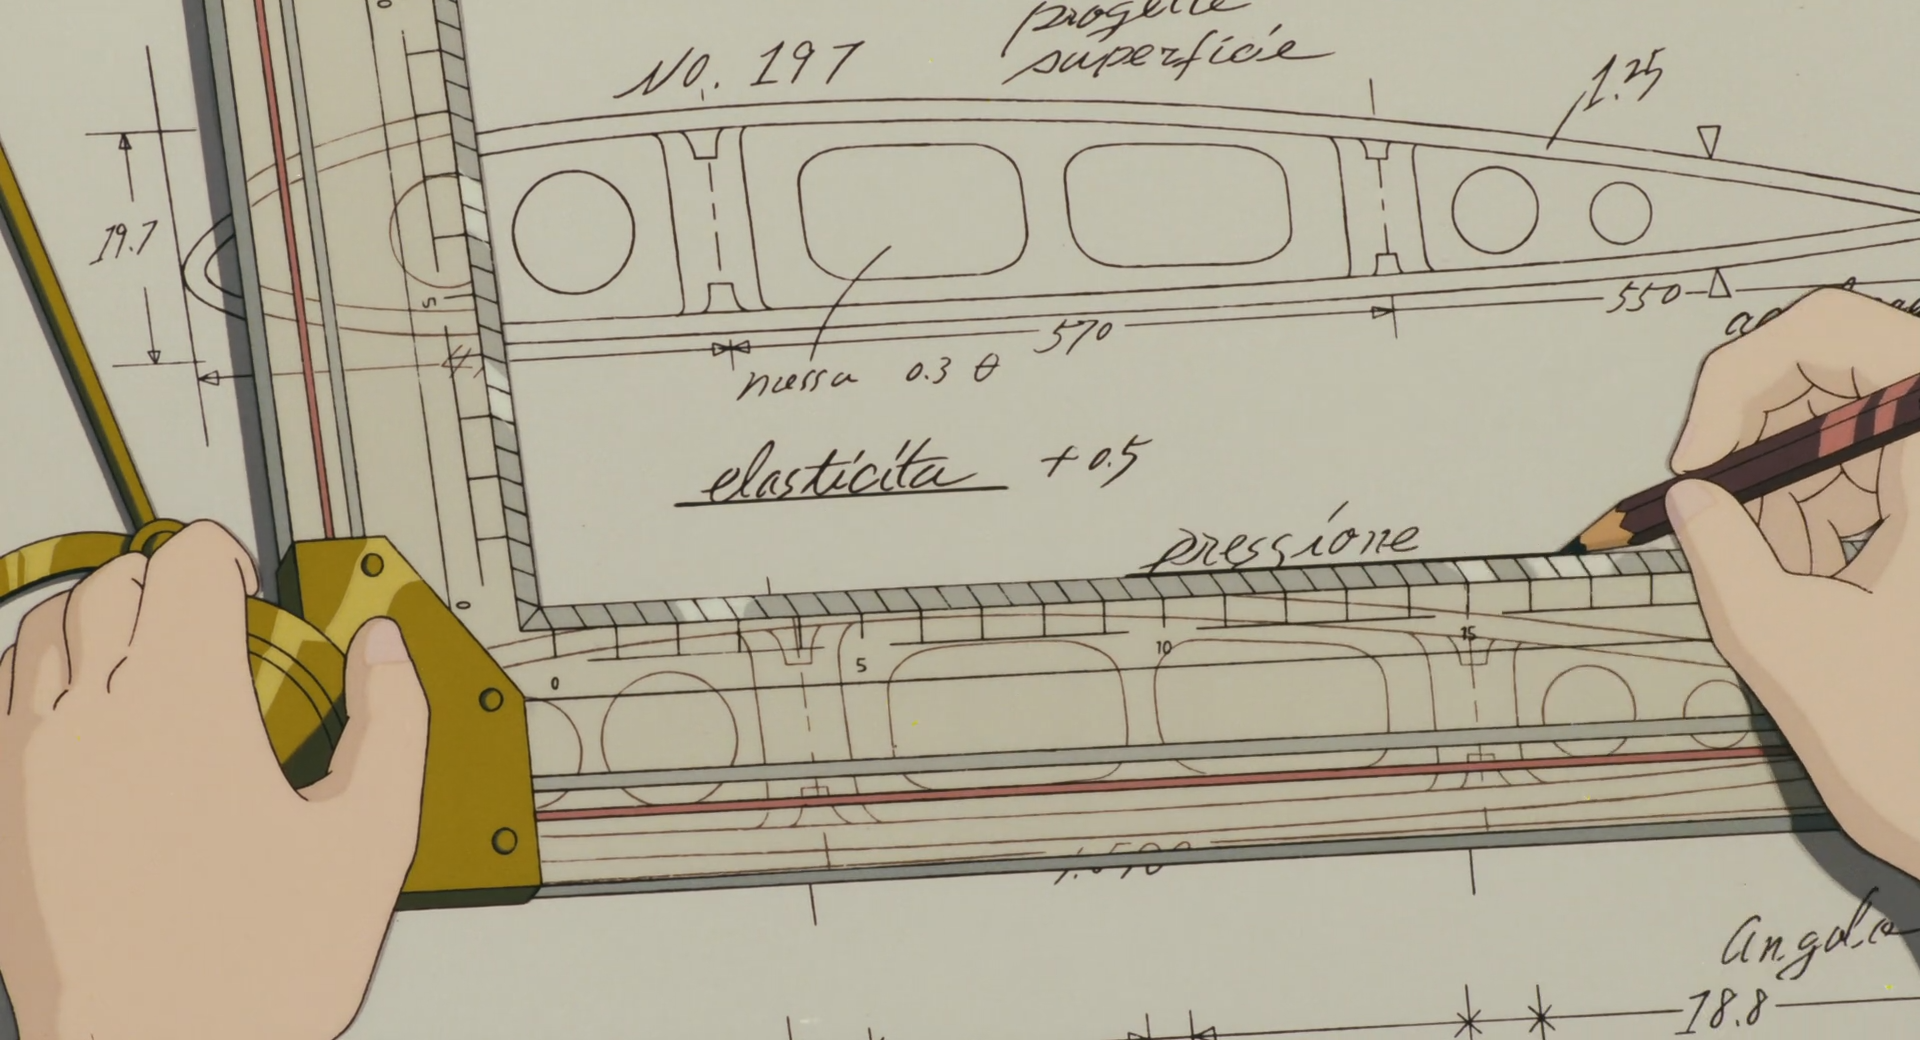 progetto
superficie
No. 197
1.25
19.7
550
570
massa 0.3 θ
elasticita +0.5
pressione
0
5
0
0
5
10
15
Angolo
18.8